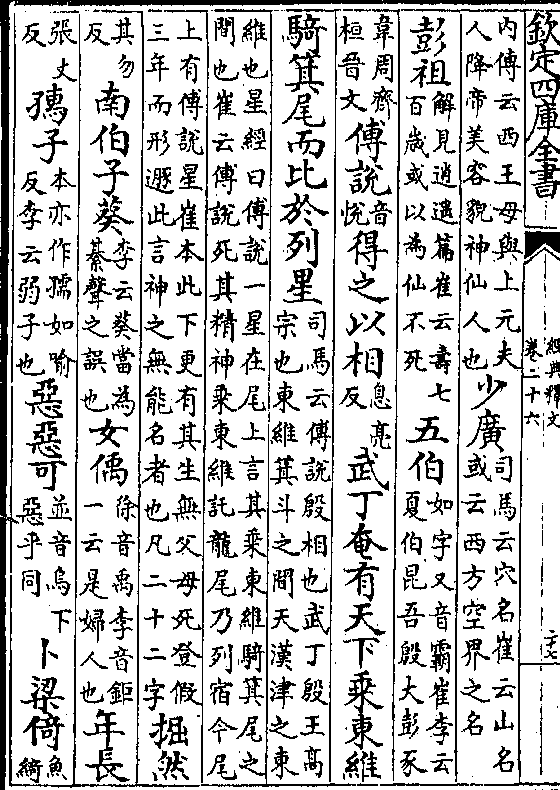 欽定四庫全書
經典釋文
卷二十六
内傳云西王母與上元夫人降帝美容貌神仙人也少廣司馬云穴名崔云山名或云西方空界之名
彭祖解見逍遥篇崔云壽七百歲或以為仙不死五伯如字又音霸崔李云夏伯昆吾殷大彭豕
韋周齊桓晉文傅說音悅得之以相息亮反武丁奄有天下乘東維
騎箕尾而比於列星司馬云傅說殷相也武丁殷王高宗也東維箕斗之間天漢津之東
維也星經曰傅說一星在尾上言其乘東維騎箕尾之間也崔云傅說死其精神乘東維託龍尾乃列宿今尾
上有傅說星崔本此下更有其生無父母死登假三年而形遯此言神之無能名者也凡二十二字掘然
其勿反南伯子葵李云葵當為綦聲之誤也女偊徐音禹李音鉅一云是婦人也年長
張丈反孺子本亦作孺如喻反李云弱子也惡惡可並音烏下惡乎同卜梁倚魚綺